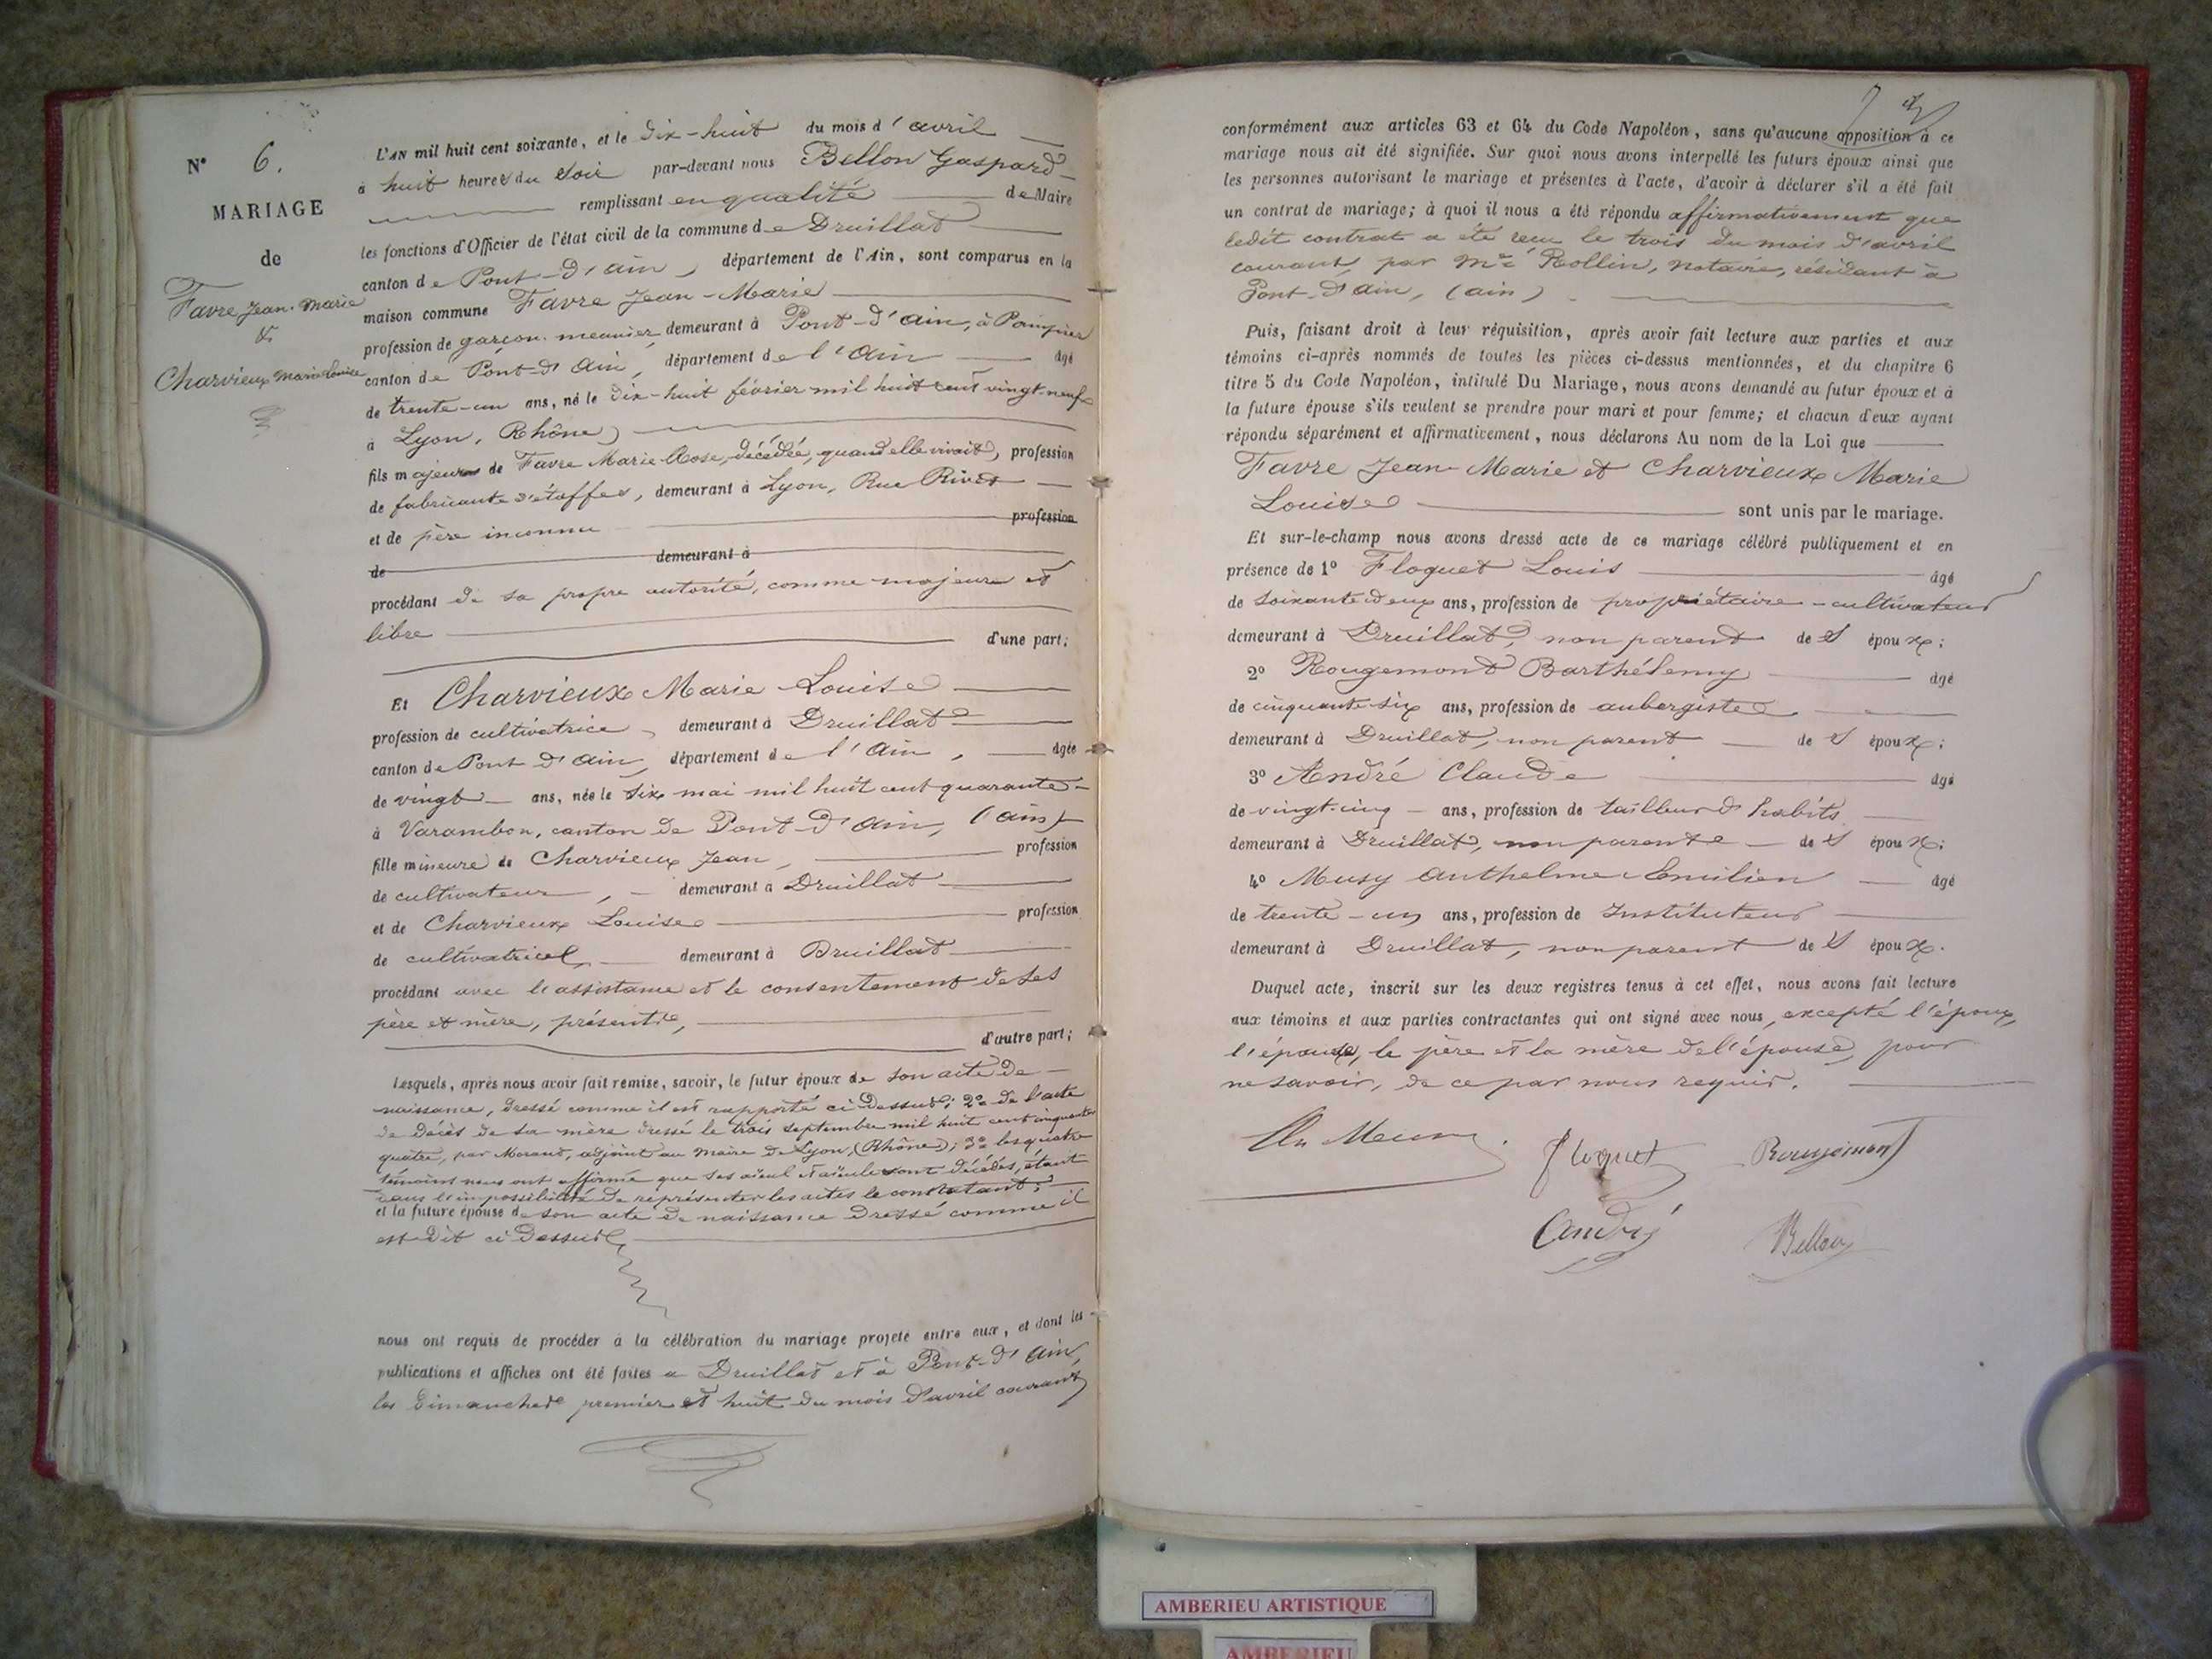 N° 6.
MARIAGE
de
Favre Jean-Marie
&
Charvieux Marie Louise
L'AN mil huit cent soixante, et le dix-huit du mois d'avril
à huit heures du soir par-devant nous Bellon Gaspard
remplissant en qualité de Maire
les fonctions d'Officier de l'état civil de la commune de Druillat
canton de Pont-d'ain, département de l'Ain, sont comparus en la
maison commune Favre Jean-Marie
profession de garçon meunier demeurant à Pont-d'ain, à
canton de Pont-d'ain, département de l'ain âgé
de trente-un ans, né le dix-huit février mil huit cent vingt-neuf
à Lyon, Rhône)
fils majeur de Favre Marie-Rose, décédée, quand elle vivait, profession
de fabricante d'étoffes, demeurant à Lyon, Rue Rivet
et de père inconnu profession
de demeurant à
procédant de sa propre autorité, comme majeure et
libre
d'une part;
Et Charvieux Marie Louise
profession de cultivatrice demeurant à Druillat
canton de Pont d'ain, département de l'ain, âgée
de vingt ans, née le six mai mil huit cent quarante
à Varambon, canton de Pont-d'ain, (ain)
fille mineure de Charvieux Jean, profession
de cultivateur, demeurant à Druillat
et de Charvieux Louise profession
de cultivatrice, demeurant à Druillat
procédant avec l'assistance et le consentement de ses
père et mère, présents,
d'autre part;
Lesquels, après nous avoir fait remise, savoir, le futur époux de son acte de
naissance, dressé comme il est rapporté ci dessus; 2° de l'acte
de décès de sa mère dressé le trois septembre mil huit cent cinquante
quatre, par Morand, adjoint au maire de Lyon, (Rhône); 3° les quatre
témoins nous ont affirmé que ses aïeul et aïeule sont décédés, étant
dans l'impossibilité de représenter les actes le constatant;
et la future épouse de son acte de naissance dressé comme il
est dit ci dessus,
nous ont requis de procéder à la célébration du mariage projeté entre eux, et dont les
publications et affiches ont été faites à Druillat et à Pont-d'ain,
les Dimanches premier et huit du mois d'avril courant
conformément aux articles 63 et 64 du Code Napoléon, sans qu'aucune opposition à ce
mariage nous ait été signifiée. Sur quoi nous avons interpellé les futurs époux ainsi que
les personnes autorisant le mariage et présentes à l'acte, d'avoir à déclarer s'il a été fait
un contrat de mariage; à quoi il nous a été répondu affirmativement que
ledit contrat a été reçu le trois du mois d'avril
courant, par Me Rollin, notaire, résidant à
Pont-d'ain, (ain).
Puis, faisant droit à leur réquisition, après avoir fait lecture aux parties et aux
témoins ci-après nommés de toutes les pièces ci-dessus mentionnées, et du chapitre 6
titre 5 du Code Napoléon, intitulé Du Mariage, nous avons demandé au futur époux et à
la future épouse s'ils veulent se prendre pour mari et pour femme; et chacun d'eux ayant
répondu séparément et affirmativement, nous déclarons Au nom de la Loi que
Favre Jean-Marie et Charvieux Marie
Louise sont unis par le mariage.
Et sur-le-champ nous avons dressé acte de ce mariage célébré publiquement et en
présence de 1° Floquet Louis âgé
de soixante deux ans, profession de propriétaire-cultivateur
demeurant à Druillat, non parent des époux;
2° Rougemont Barthélemy âgé
de cinquante-six ans, profession de aubergiste
demeurant à Druillat, non parent des époux;
3° André Claude âgé
de vingt-cinq ans, profession de tailleur d'habits
demeurant à Druillat, non parent des époux;
4° Musy Anthelme Emilien âgé
de trente-un ans, profession de Instituteur
demeurant à Druillat, non parent des époux.
Duquel acte, inscrit sur les deux registres tenus à cet effet, nous avons fait lecture
aux témoins et aux parties contractantes qui ont signé avec nous, excepté l'époux,
l'épouse, le père et la mère de l'épouse, pour
ne savoir, de ce par nous requis.
Floquet Rougemont
André Bellon
AMBERIEU ARTISTIQUE
AMBERIEU